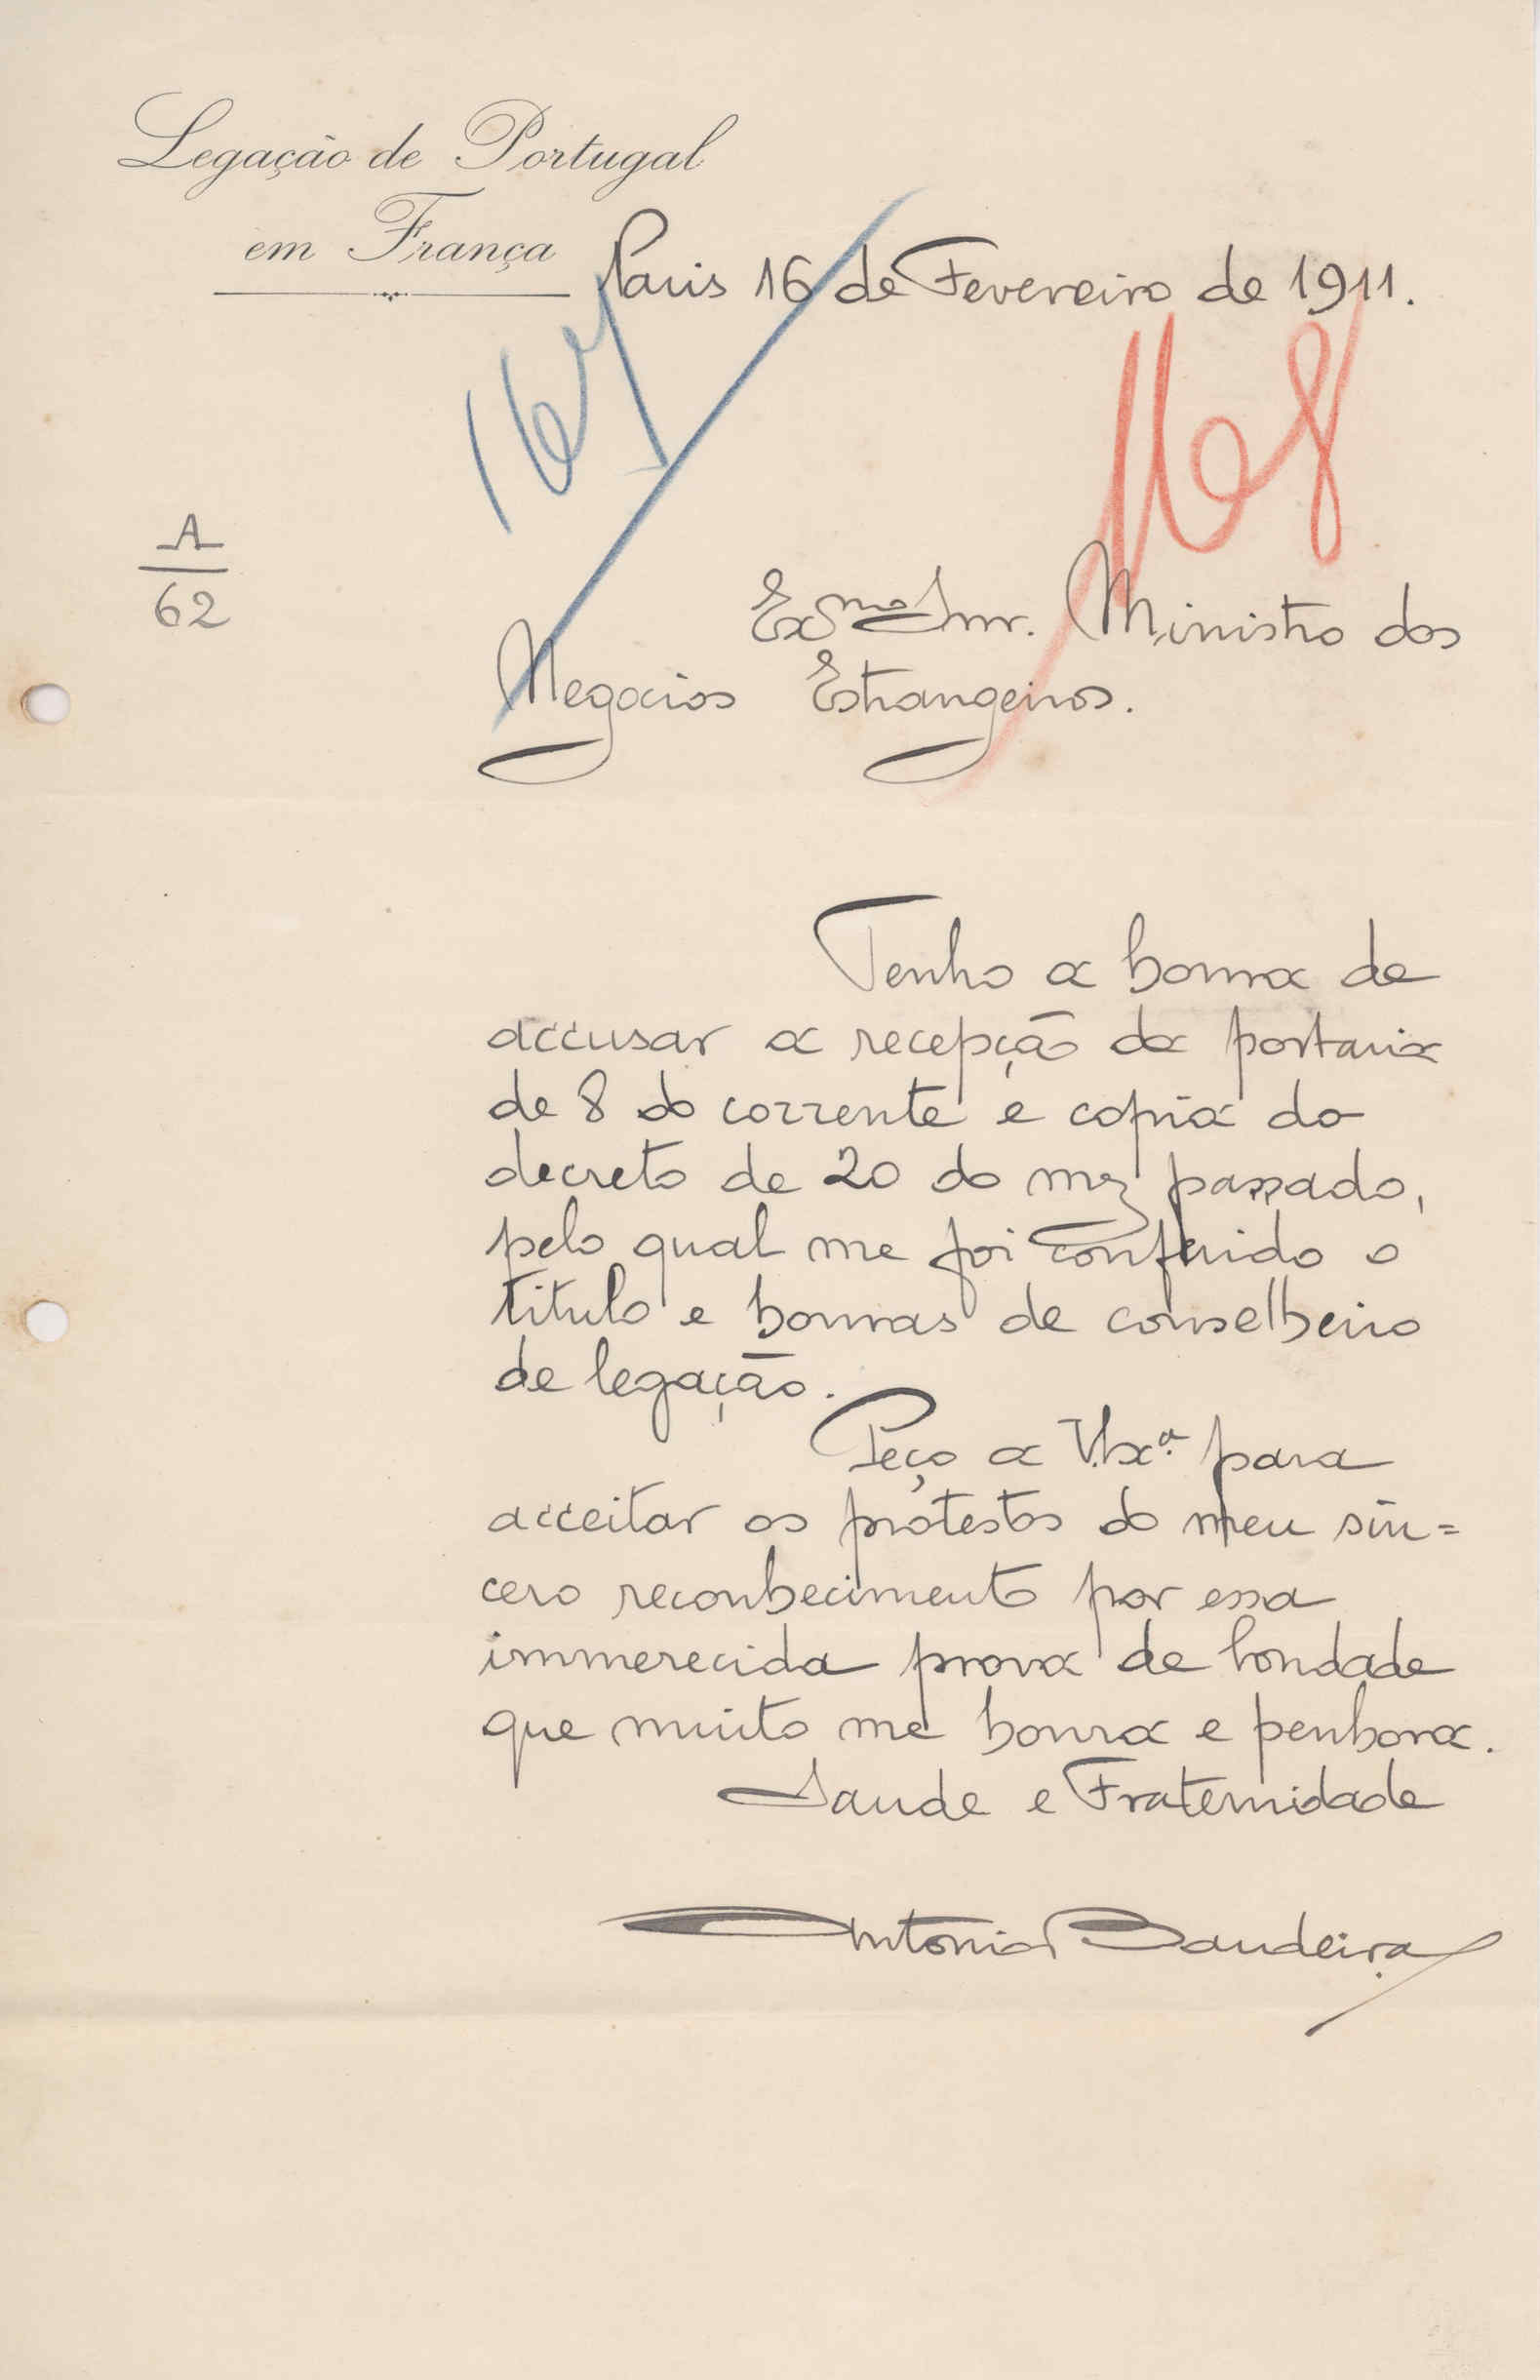 Legação de Portugal
em França
Paris 16 de Fevereiro de 1911.
167
168
A
62
Exmo Snr. Ministro dos
Negocios Estrangeiros.
Tenho a honra de
accusar a recepção da portaria
de 8 do corrente e copia do
decreto de 20 do mez passado,
pelo qual me foi conferido o
titulo e honras de conselheiro
de legação.
Peço a V.Exª. para
acceitar os protestos do meu sin=
cero reconhecimento por essa
immerecida prova de bondade
que muito me honra e penhora.
Saude e Fraternidade
Antonio Bandeira